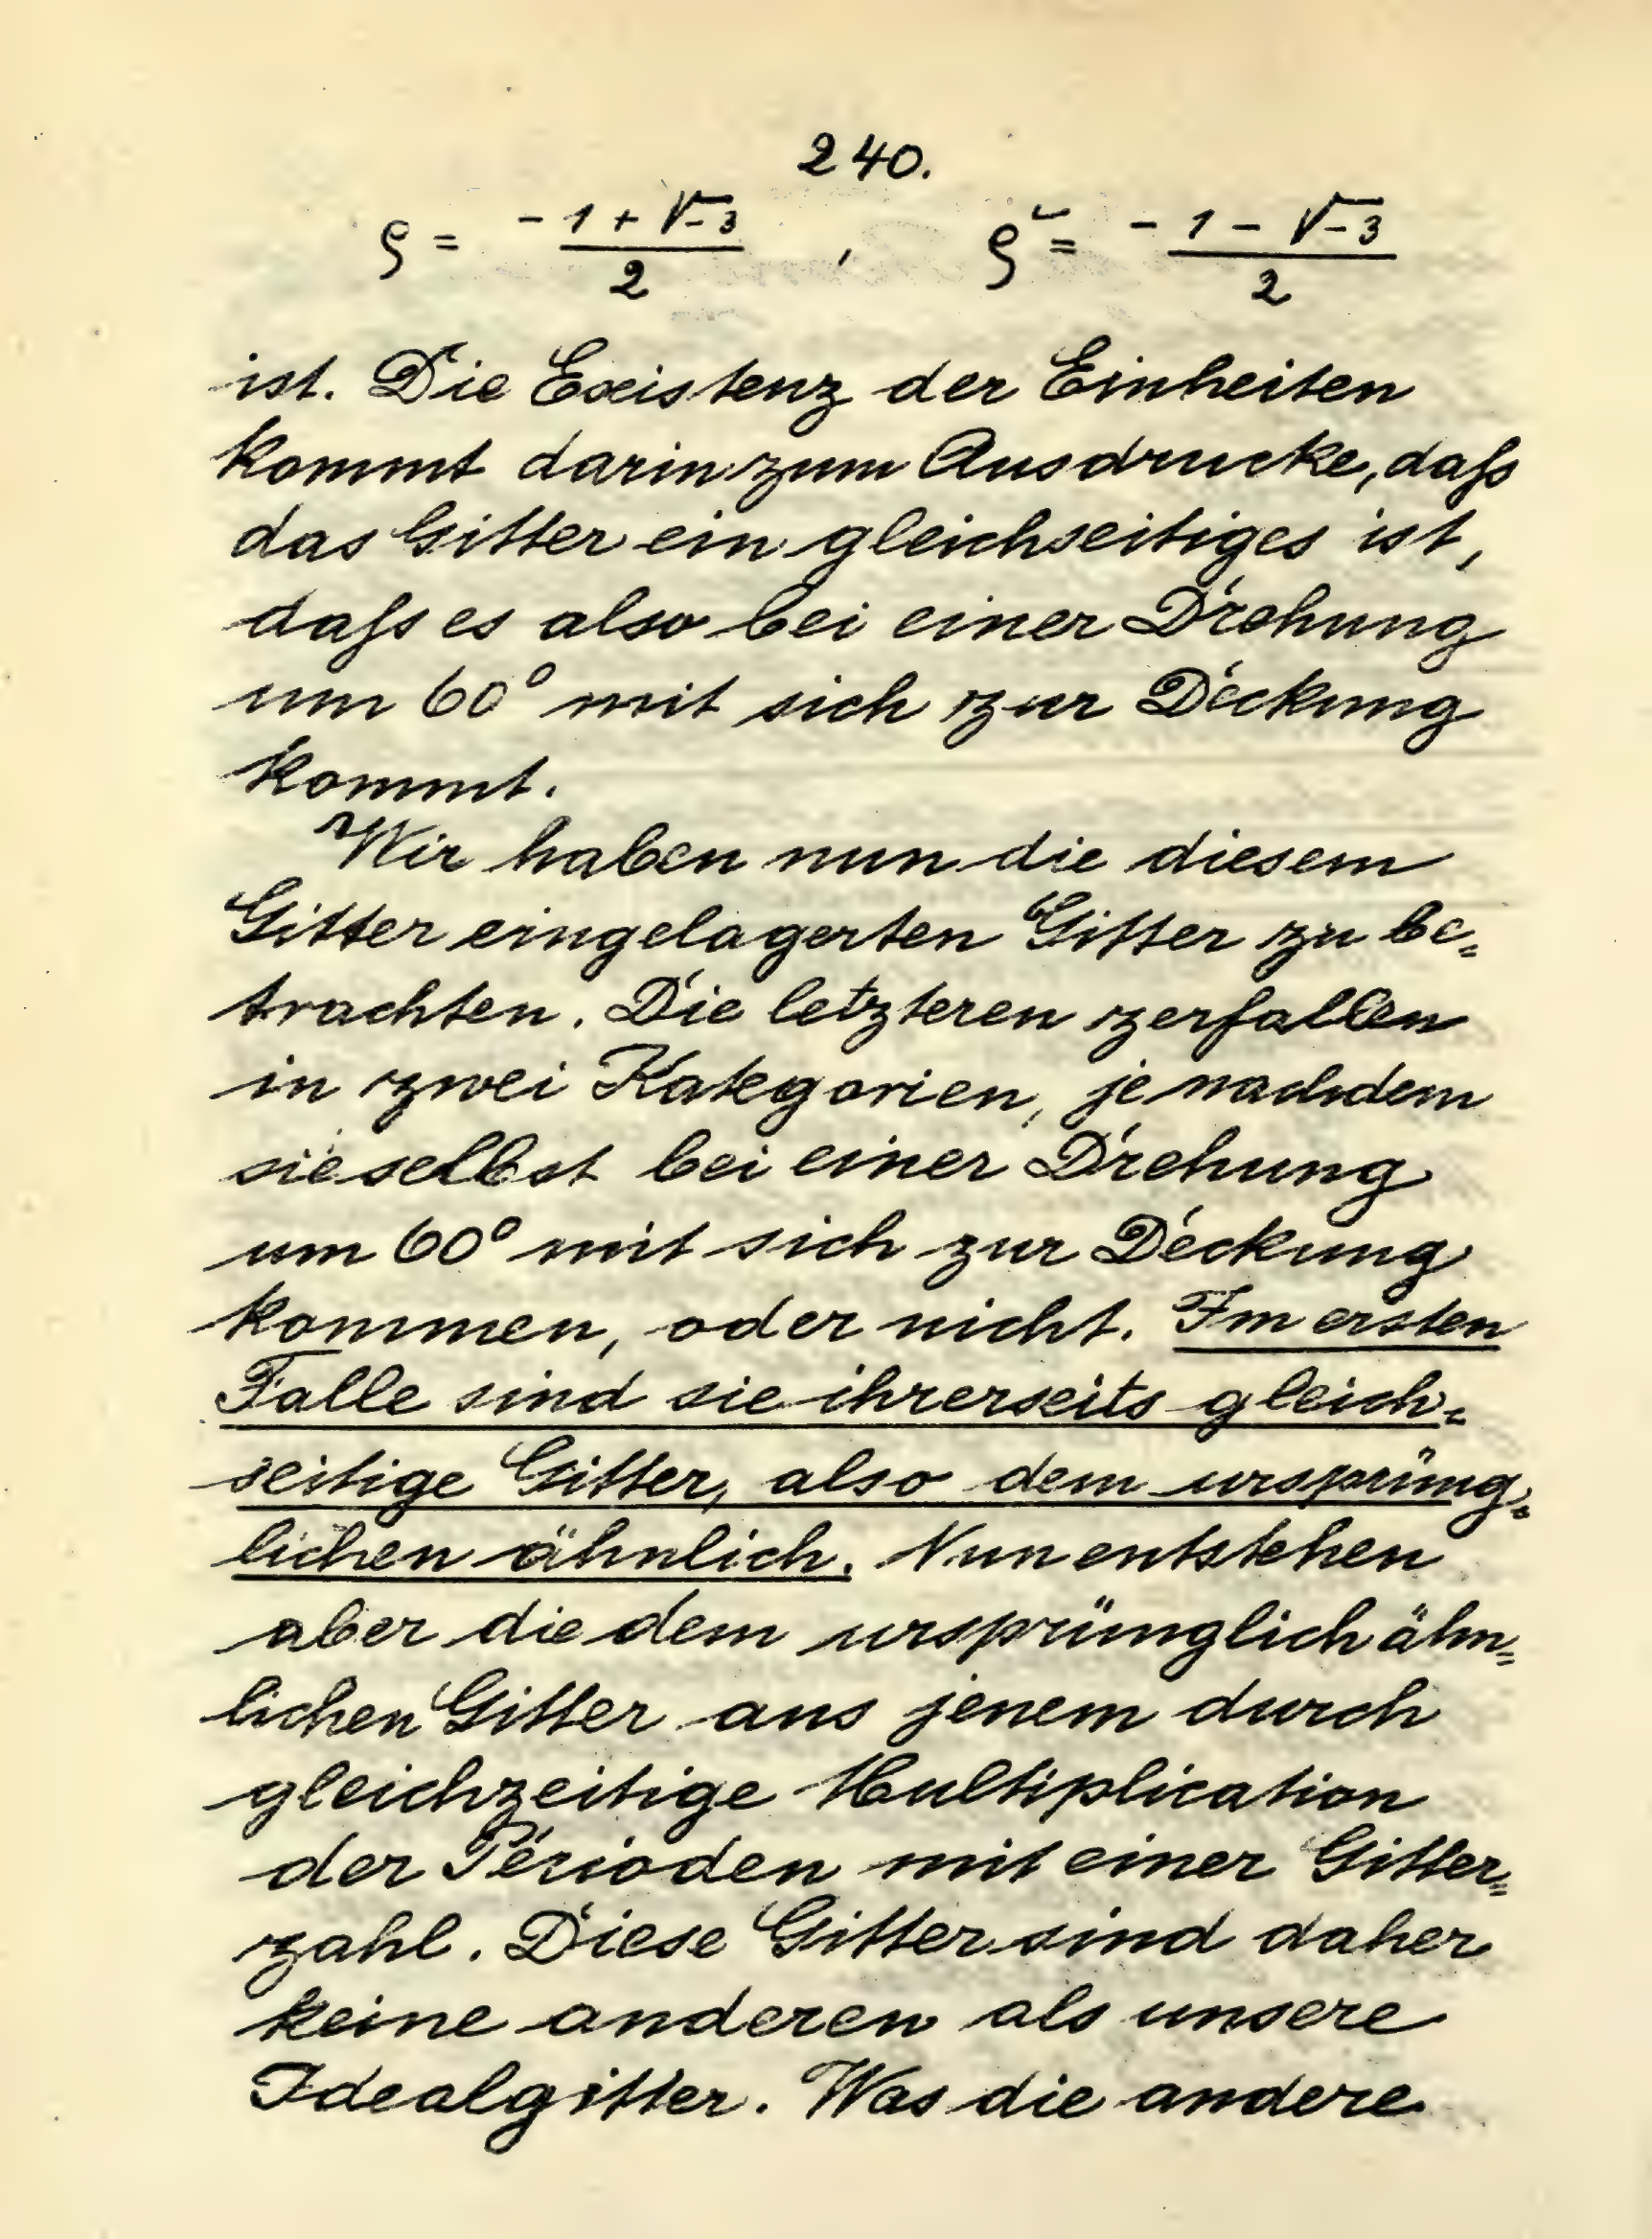 240.
ρ = (-1 + √-3)/2 , ρ² = (-1 - √-3)/2
ist. Die Existenz der Einheiten
kommt darin zum Ausdrucke, daſs
das Gitter ein gleichseitiges ist,
daſs es also bei einer Drehung
um 60° mit sich zur Deckung
kommt.
Wir haben nun die diesem
Gitter eingelagerten Gitter zu be=
trachten. Die letzteren zerfallen
in zwei Kategorien, je nachdem
sie selbst bei einer Drehung
um 60° mit sich zur Deckung
kommen, oder nicht. Im ersten
Falle sind sie ihrerseits gleich=
seitige Gitter, also dem ursprüng=
lichen ähnlich. Nun entstehen
aber die dem ursprünglich ähn=
lichen Gitter aus jenem durch
gleichzeitige Multiplication
der Perioden mit einer Gitter=
zahl. Diese Gitter sind daher
keine anderen als unsere
Idealgitter. Was die andere